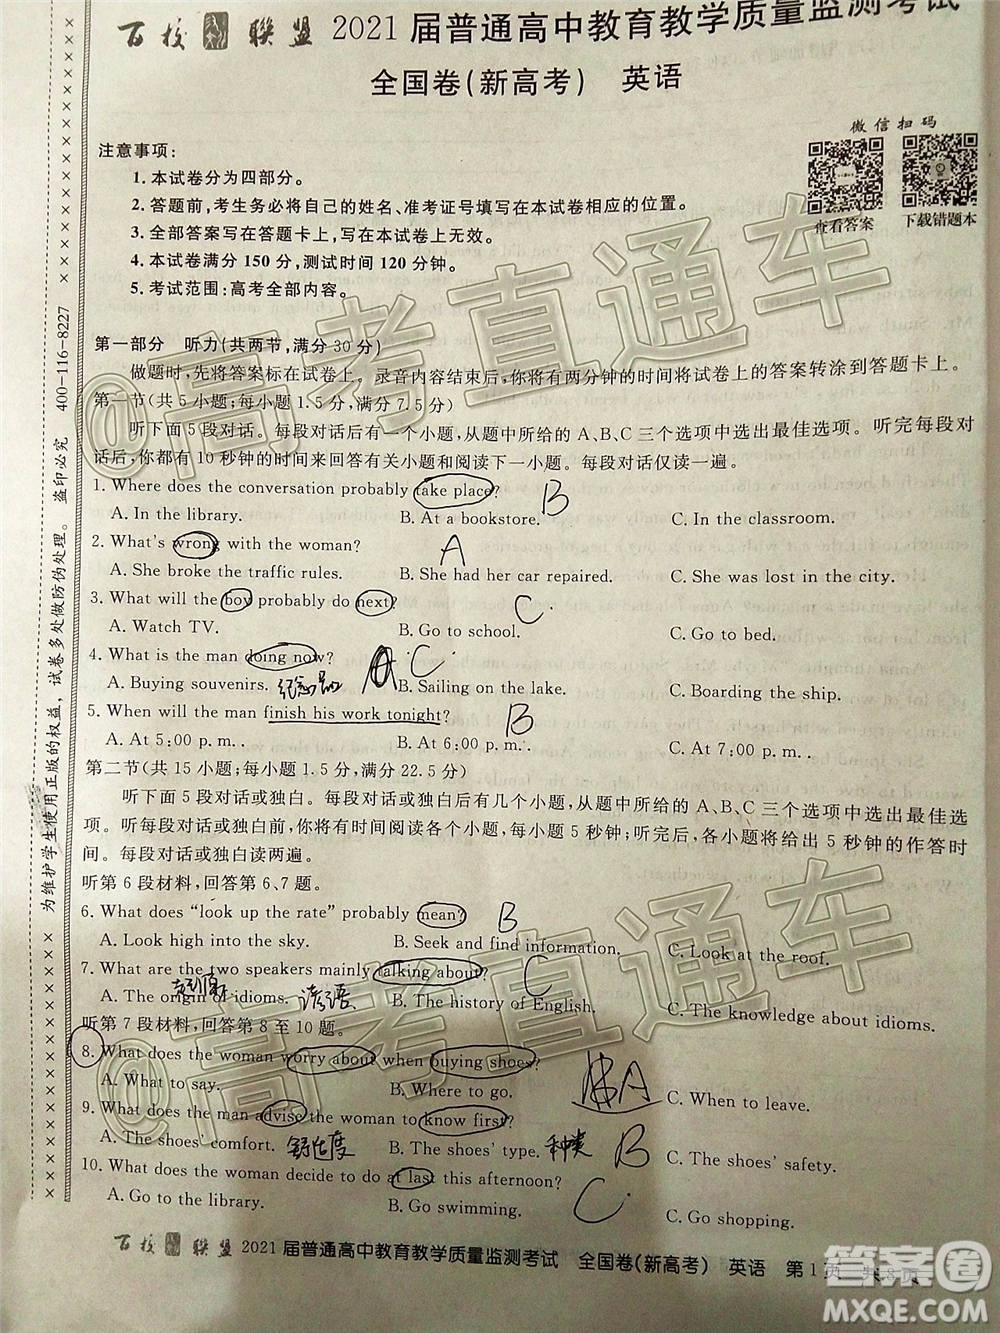 百校联盟 2021届普通高中教育教学质量监测考试
全国卷(新高考) 英语
微信扫码
查看答案 下载错题本
注意事项:
1.本试卷分为四部分。
2.答题前,考生务必将自己的姓名、准考证号填写在本试卷相应的位置。
3.全部答案写在答题卡上,写在本试卷上无效。
4.本试卷满分150分,测试时间120分钟。
5.考试范围:高考全部内容。
第一部分 听力(共两节,满分30分)
做题时,先将答案标在试卷上。录音内容结束后,你将有两分钟的时间将试卷上的答案转涂到答题卡上。
第一节(共5小题;每小题1.5分,满分7.5分)
听下面5段对话。每段对话后有一个小题,从题中所给的A、B、C三个选项中选出最佳选项。听完每段对
话后,你都有10秒钟的时间来回答有关小题和阅读下一小题。每段对话仅读一遍。
1. Where does the conversation probably take place? B
A. In the library. B. At a bookstore. C. In the classroom.
2. What's wrong with the woman? A
A. She broke the traffic rules. B. She had her car repaired. C. She was lost in the city.
3. What will the boy probably do next? C
A. Watch TV. B. Go to school. C. Go to bed.
4. What is the man doing now? C
A. Buying souvenirs. 纪念品 B. Sailing on the lake. C. Boarding the ship.
5. When will the man finish his work tonight? B
A. At 5:00 p. m.. B. At 6:00 p. m.. C. At 7:00 p. m..
第二节(共15小题;每小题1.5分,满分22.5分)
听下面5段对话或独白。每段对话或独白后有几个小题,从题中所给的A、B、C三个选项中选出最佳选
项。听每段对话或独白前,你将有时间阅读各个小题,每小题5秒钟;听完后,各小题将给出5秒钟的作答时
间。每段对话或独白读两遍。
听第6段材料,回答第6、7题。
6. What does "look up the rate" probably mean? B
A. Look high into the sky. B. Seek and find information. C. Look at the roof.
7. What are the two speakers mainly talking about? C
A. The origin of idioms. B. The history of English. C. The knowledge about idioms.
听第7段材料,回答第8至10题。
8. What does the woman worry about when buying shoes? A
A. What to say. B. Where to go. C. When to leave.
9. What does the man advise the woman to know first? B
A. The shoes' comfort. 舒适度 B. The shoes' type. 种类 C. The shoes' safety.
10. What does the woman decide to do at last this afternoon? C
A. Go to the library. B. Go swimming.
百校联盟 2021届普通高中教育教学质量监测考试 全国卷(新高考) 英语 第1页 共8页
为维护学生使用正版的权益,试卷多处做防伪处理。盗印必究 400-116-8227
@高考直通车
@高考直通车
答案圈
MXQE.COM